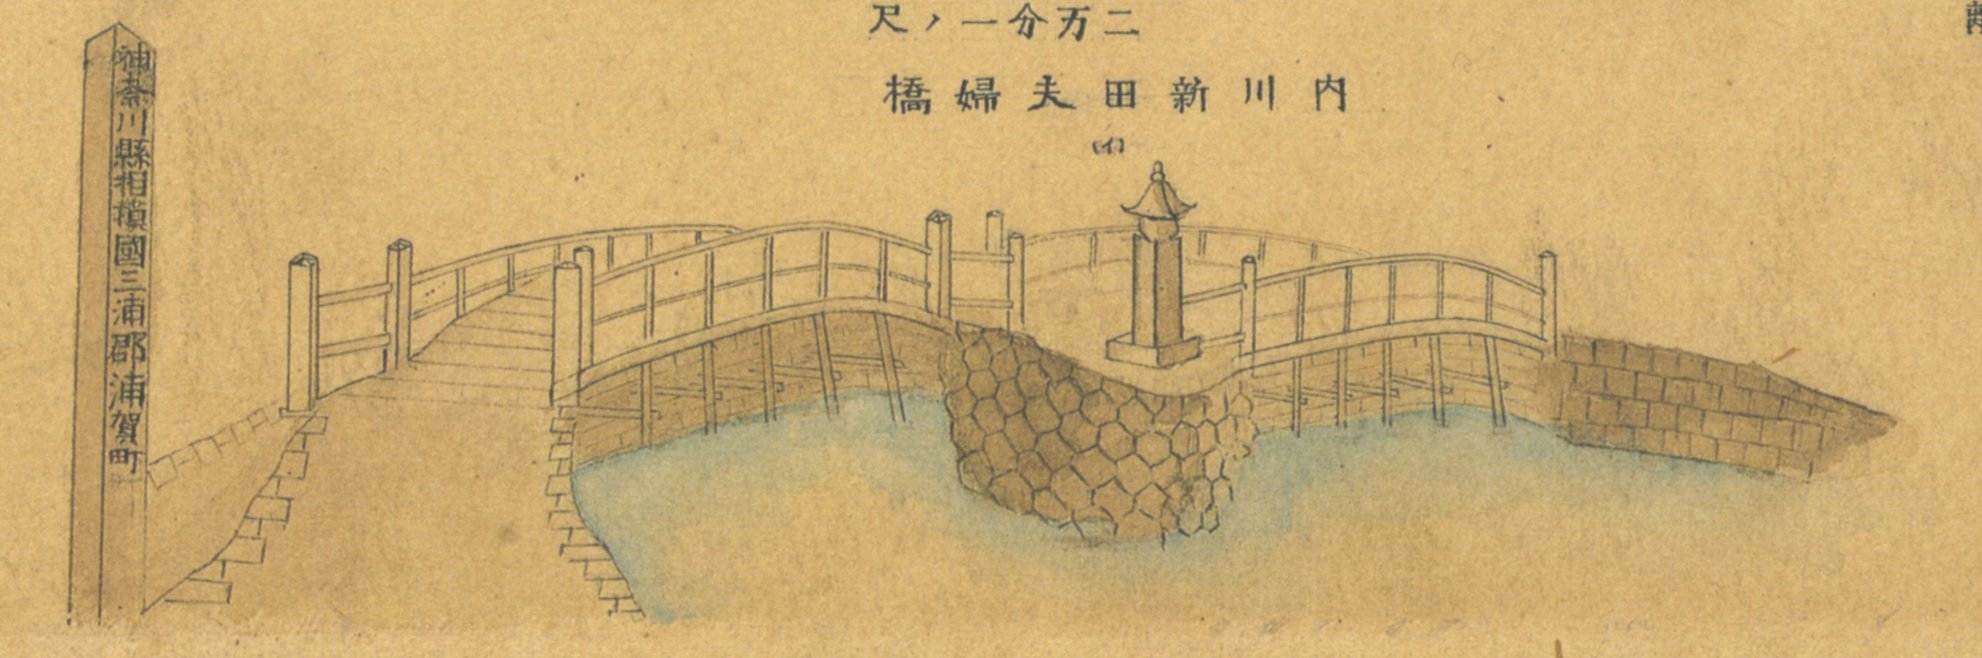 二万分一ノ尺
内川新田夫婦橋
(イ)
神奈川縣相摸國三浦郡浦賀町